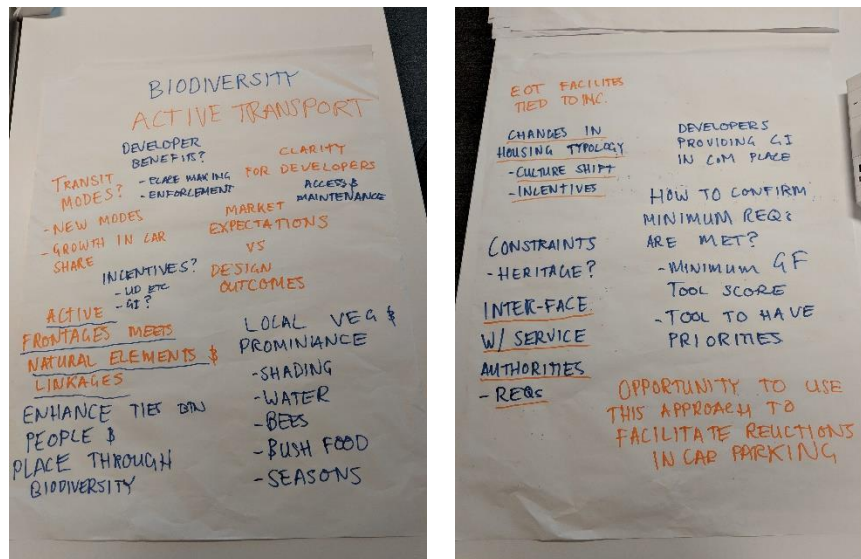 BIODIVERSITY
ACTIVE TRANSPORT
DEVELOPER
BENEFITS?
- PLACE MAKING
- ENFORCEMENT
CLARITY
FOR DEVELOPERS
ACCESS &
MAINTENANCE
TRANSIT
MODES?
- NEW MODES
- GROWTH IN CAR
SHARE
MARKET
EXPECTATIONS
VS
DESIGN
OUTCOMES
INCENTIVES?
- UD ETC
- GI?
ACTIVE
FRONTAGES MEETS
NATURAL ELEMENTS &
LINKAGES
ENHANCE TIES BTN
PEOPLE &
PLACE THROUGH
BIODIVERSITY
LOCAL VEG &
PROMINANCE
- SHADING
- WATER
- BEES
- BUSH FOOD
- SEASONS
EOT FACILITES
TIED TO INC.
CHANGES IN
HOUSING TYPOLOGY
- CULTURE SHIFT
- INCENTIVES
CONSTRAINTS
- HERITAGE?
INTER-FACE
W/ SERVICE
AUTHORITIES
- REQs
DEVELOPERS
PROVIDING GI
IN COM PLACE
HOW TO CONFIRM
MINIMUM REQs
ARE MET?
- MINIMUM GF
TOOL SCORE
- TOOL TO HAVE
PRIORITIES
OPPORTUNITY TO USE
THIS APPROACH TO
FACILITATE REUCTIONS
IN CAR PARKING